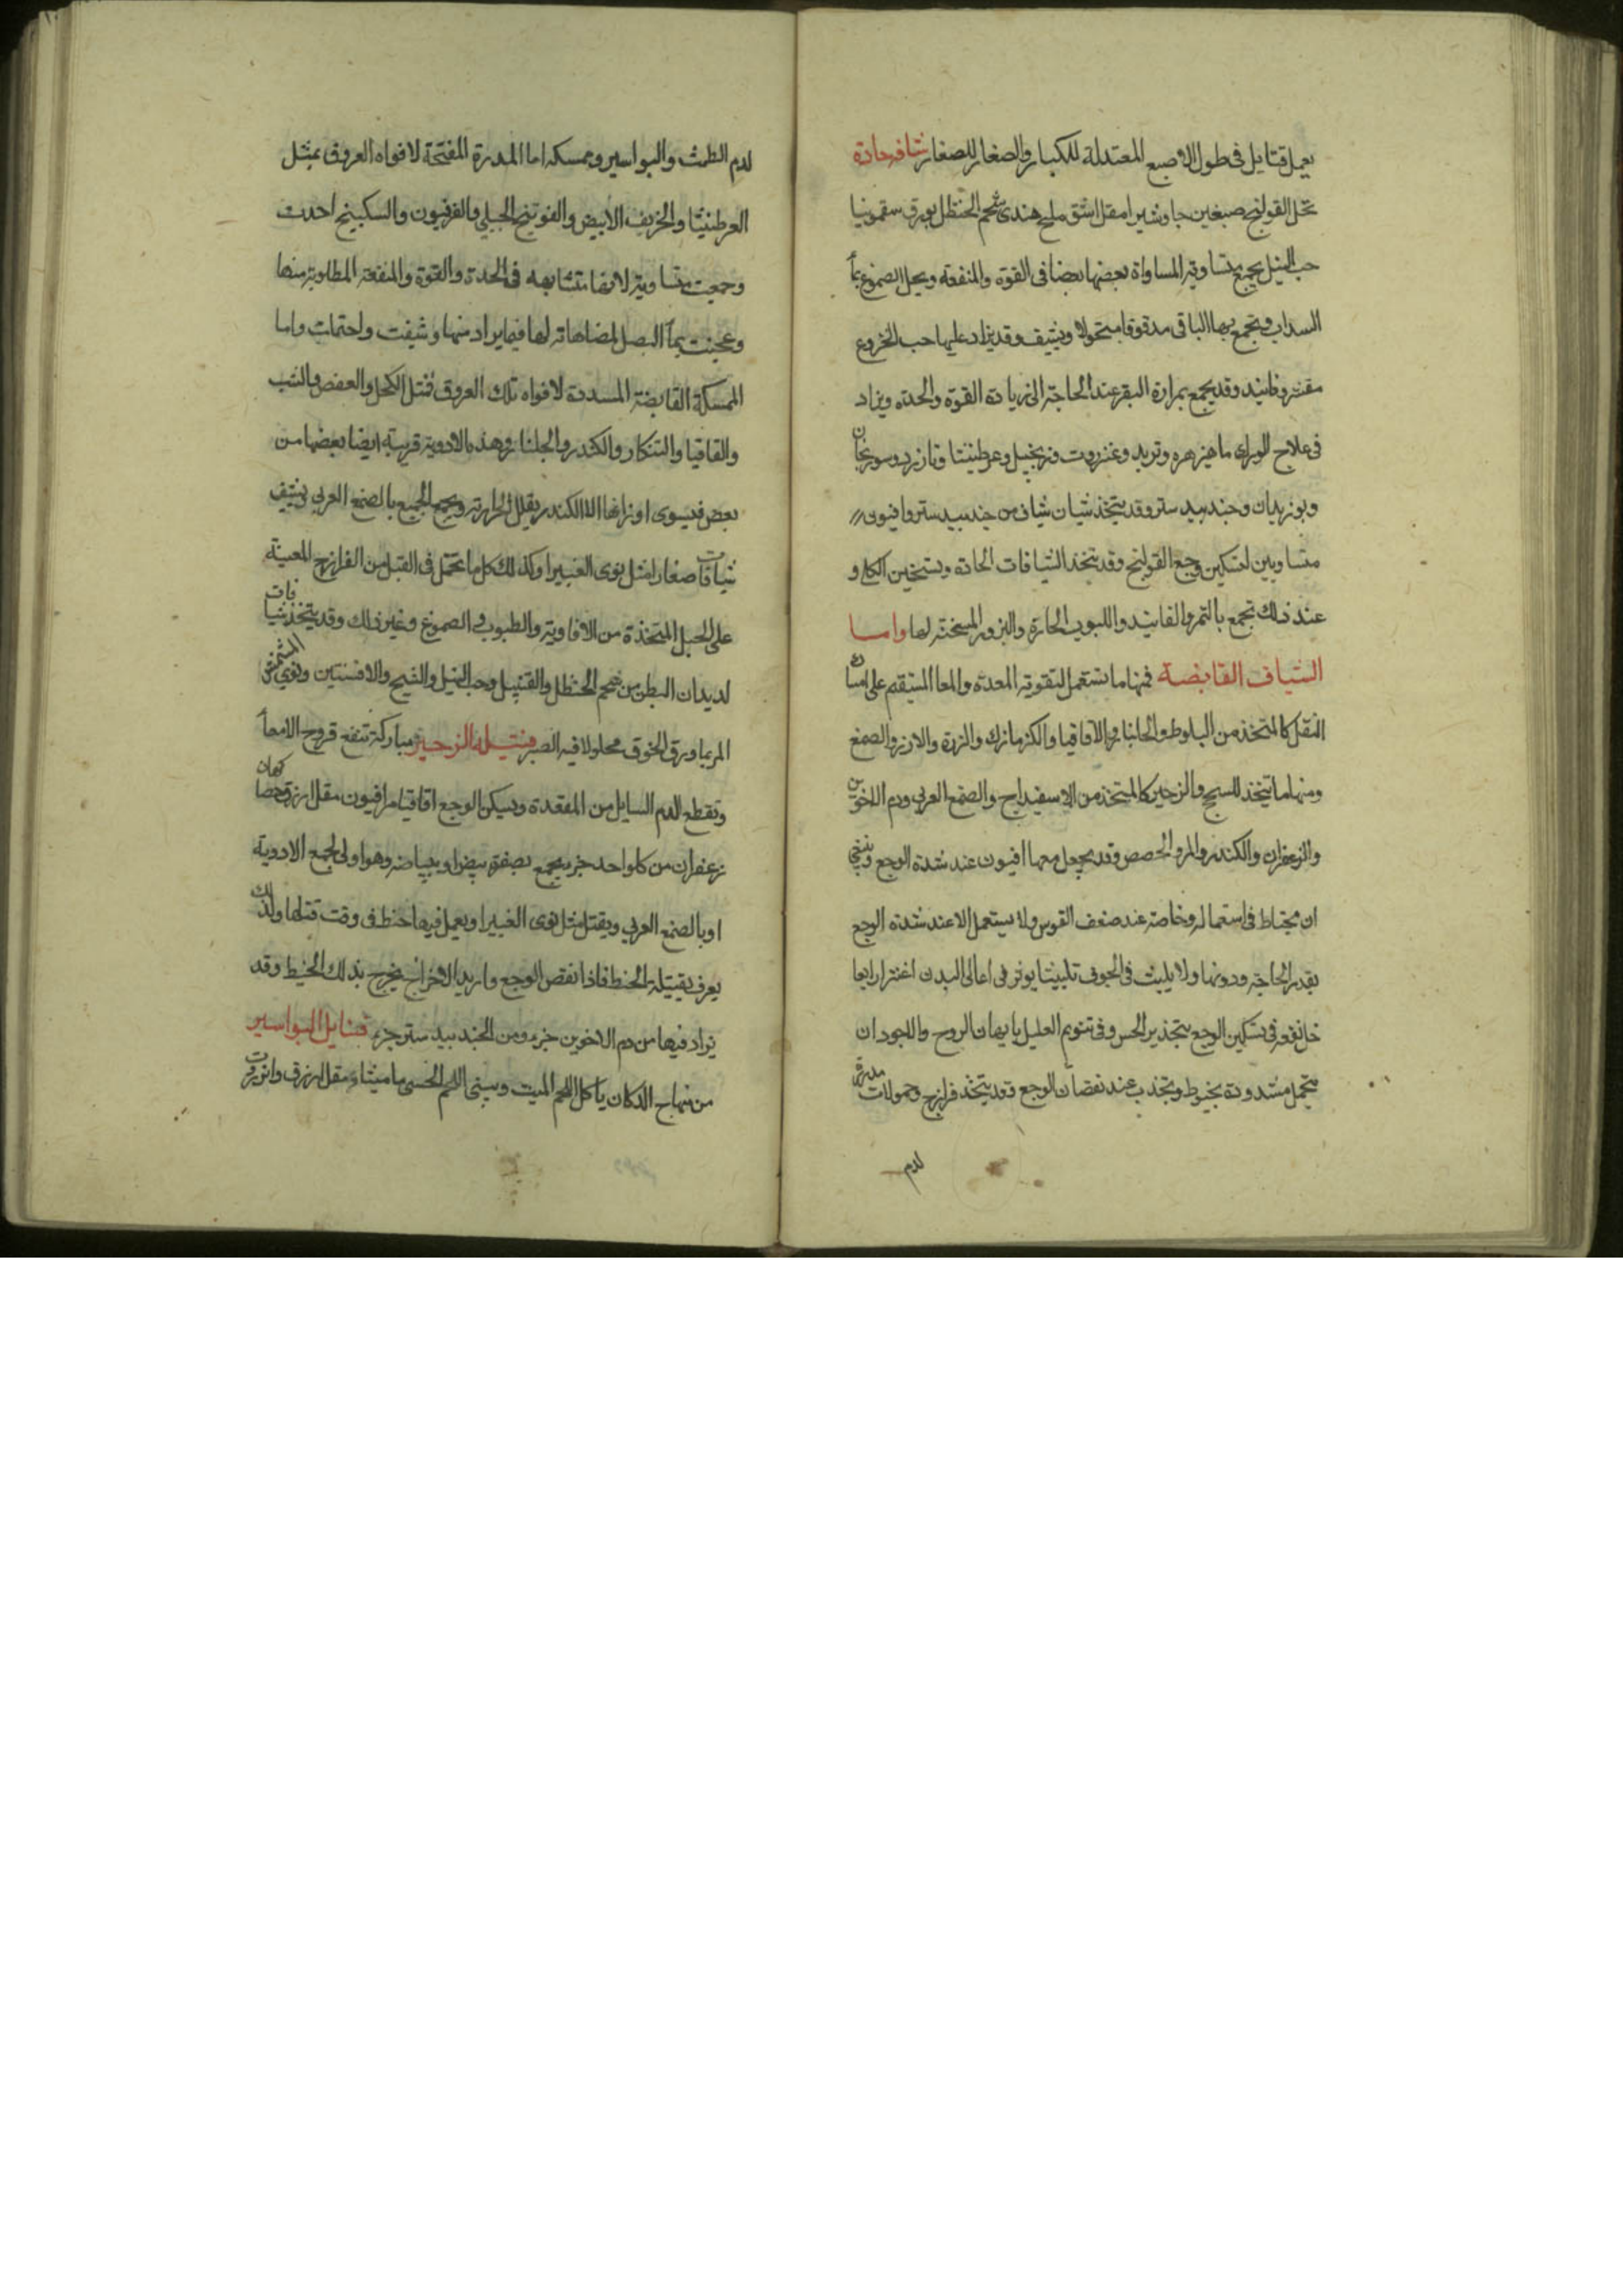 يعمل فتايل فى طول الاصبع المعتدلة للكبار والصغار للصغار شافه حادة
تحل القولنج صبغين جاوشير امقل اشق ملح هندى شحم الحنظل بورق سقمونيا
حب النيل يجمع متساوية المساواة بعضها بعضا فى القوة والمنفعة ويحل الصموغ بمآ
السداب ويجمع بها الباقى مدقوقا منخولا ويشيف وقد يزاد عليها حب الخروع
مقشر وفانيد وقد يجمع بمرارة البقر عند الحاجة الى زيادة القوة والحدة ويزاد
فى علاج الورك ماهيزهره وتربد وعنزروت وزنجبيل وعرطنيثا وسورنجان
وبوزيدان وجندبيدستر وقد يتخذ شياف من جندبيدستر وافيون
متساويين لتسكين وجع القولنج وقد يتخذ الشيافات الحادة وتسخين الكلى و
عند ذلك تجمع بالتمر والفانيد واللبوب الحارة والبزور المسخنة لها واما
الشياف القابضة فمنها ما تستعمل لتقوية المعدة والمعا المستقيم على امساك
الثقل كالمتخذ من البلوط والجلنار والاقاقيا والكزمازك والارز والصمغ
ومنها ما يتخذ للسحج والزحير كالمتخذ من الاسفيداج والصمغ العربى ودم الاخوين
والزعفران والكندر والمر والحصص وقد يجعل معها افيون عند شدة الوجع وينبغى
ان يحتاط فى استعماله وخاصة عند ضعف القوى ولا يستعمل الا عند شدة الوجع
بقدر الحاجة ودونها ولا يلبث فى الجوف تلبيثا يوثر فى اعالى البدن اغترارا بما
فى تسكين الوجع بتخدير الحس وفى تنويم العليل بايهان الروح والاجود ان
يتحمل مشدودة بخيوط وتجذب عند نقصان الوجع وقد يتخذ فرازج وحمولات مدرة
لدم
لدم الطمث والبواسير وممسكه اما المدرة المفتحة لافواه العروق بمثل
العرطنيثا والخربق الابيض والفوتنج الجبلى والفرفيون والسكبينج اخذت
وجمعت متساوية لانها متشابهه فى الحدة والقوة والمنفعة المطلوبة منها
وعجنت بمآ البصل لمضاهاته لها فيما يراد منها وشيفت واحتملت واما
الممسكة القابضة المسددة لافواه تلك العروق فمثل الكحل والعفص والشب
والقاقيا والتنكار والكندر والجلنار وهذه الادوية قريبة ايضا بعضها من
بعض فيسوى اوزانها الا الكندر يقلل لحرارته ويجمع الجميع بالصمغ العربى ويشيف
شيافات صغار امثل نوى الغبيرا وكذلك كل ما تحمل فى القبل من الفرازج المعينة
على الحبل المتخذة من الافاوية والطيوب فى الصموغ وغير ذلك وقد يتخذ شيافات
لديدان البطن من شحم الحنظل والقنبيل وحب النيل والشيح والافسنتين ونوى المشمش
المر بما ورق الخوخ محلولا فيه الصبر فتيلة الزحير مباركة تنفع قروح الامعآ
وتقطع الدم السايل من المقعدة ويسكن الوجع اقاقيا مر افيون مقل ازرق
زعفران من كل واحد جزء يجمع بصفرة بيض او ببياضه وهو اولى لجمع الادوية
او بالصمغ العربى ويفتل مثل نوى الغبيرا ويعمل فيها خيط فى وقت فتلها ولذلك
يعرف بفتيلة الخيط فاذا نقص الوجع واريد الاخراج يخرج بذلك الخيط وقد
يزاد فيها من دم الاخوين جزء ومن الجندبيدستر جزء فتايل البواسير
من منهاج الدكان ياكل اللحم الميت وينبت اللحم الحسى ماميثا مقل ازرق وانزروت